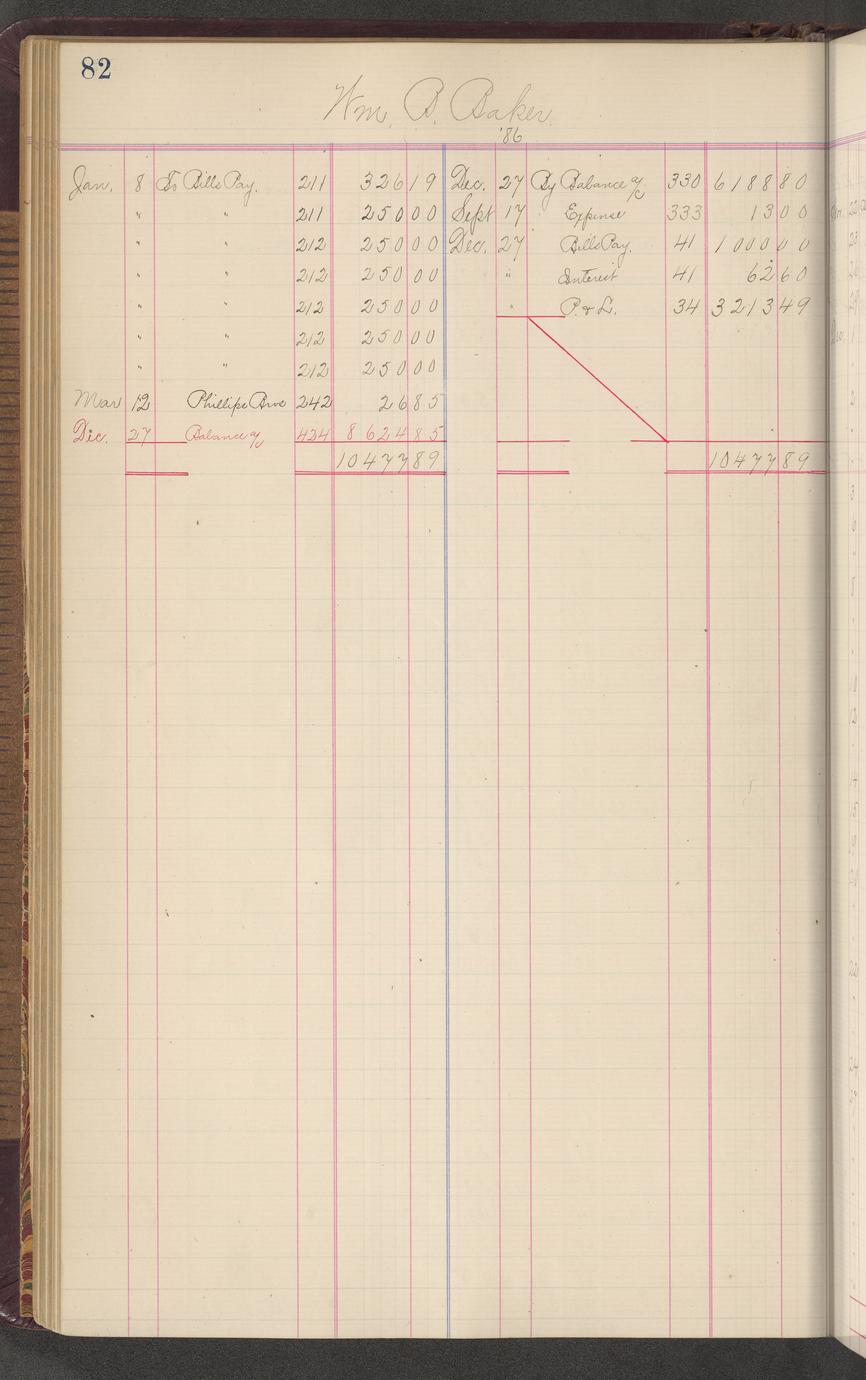 82
Wm. B. Baker.
'86
Jan. 8 To Bills Pay. 211 326 19 Dec. 27 By Balance a/c 330 6188 80
" " 211 250 00 Sept 17 Expense 333 13 00
" " 212 250 00 Dec. 27 Bills Pay. 41 1000 00
" " 212 250 00 " Interest 41 62 60
" " 212 250 00 " P. & L. 34 3213 49
" " 212 250 00
" " 212 250 00
Mar 12 Phillips 242 26 85
Dec. 27 Balance a/c 424 8624 85
10477 89 10477 89